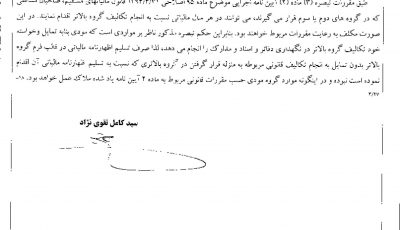 طبق مقررات تبصره (۳) ماده (۲) آیین نامه اجرایی موضوع ماده ۹۵ اصلاحی ۱۳۹۴/۳/۳۱ قانون مالیاتهای مستقیم، صاحبان مشاغلی
که در گروه های دوم یا سوم قرار می گیرند، می توانند در هر سال مالیاتی نسبت به انجام تکالیف گروه بالاتر اقدام نمایند. در این
صورت مکلف به رعایت مقررات مربوط خواهند بود. بنابراین حکم تبصره مذکور ناظر بر مواردی است که مودی بنابه تمایل و خواسته
خود تکالیف گروه بالاتر در نگهداری دفاتر و اسناد و مدارک را انجام می دهد، لذا صرف تسلیم اظهارنامه مالیاتی در قالب فرم گروه
بالاتر بدون تمایل به انجام تکالیف قانونی مربوطه به منزله قرار گرفتن در گروه بالاتری که نسبت به تسلیم اظهارنامه مالیاتی آن اقدام
نموده است نبوده و در اینگونه موارد گروه مودی حسب مقررات قانونی مربوط به ماده ۲ آیین نامه یاد شده ملاک عمل خواهد بود.
سید کامل تقوی نژاد